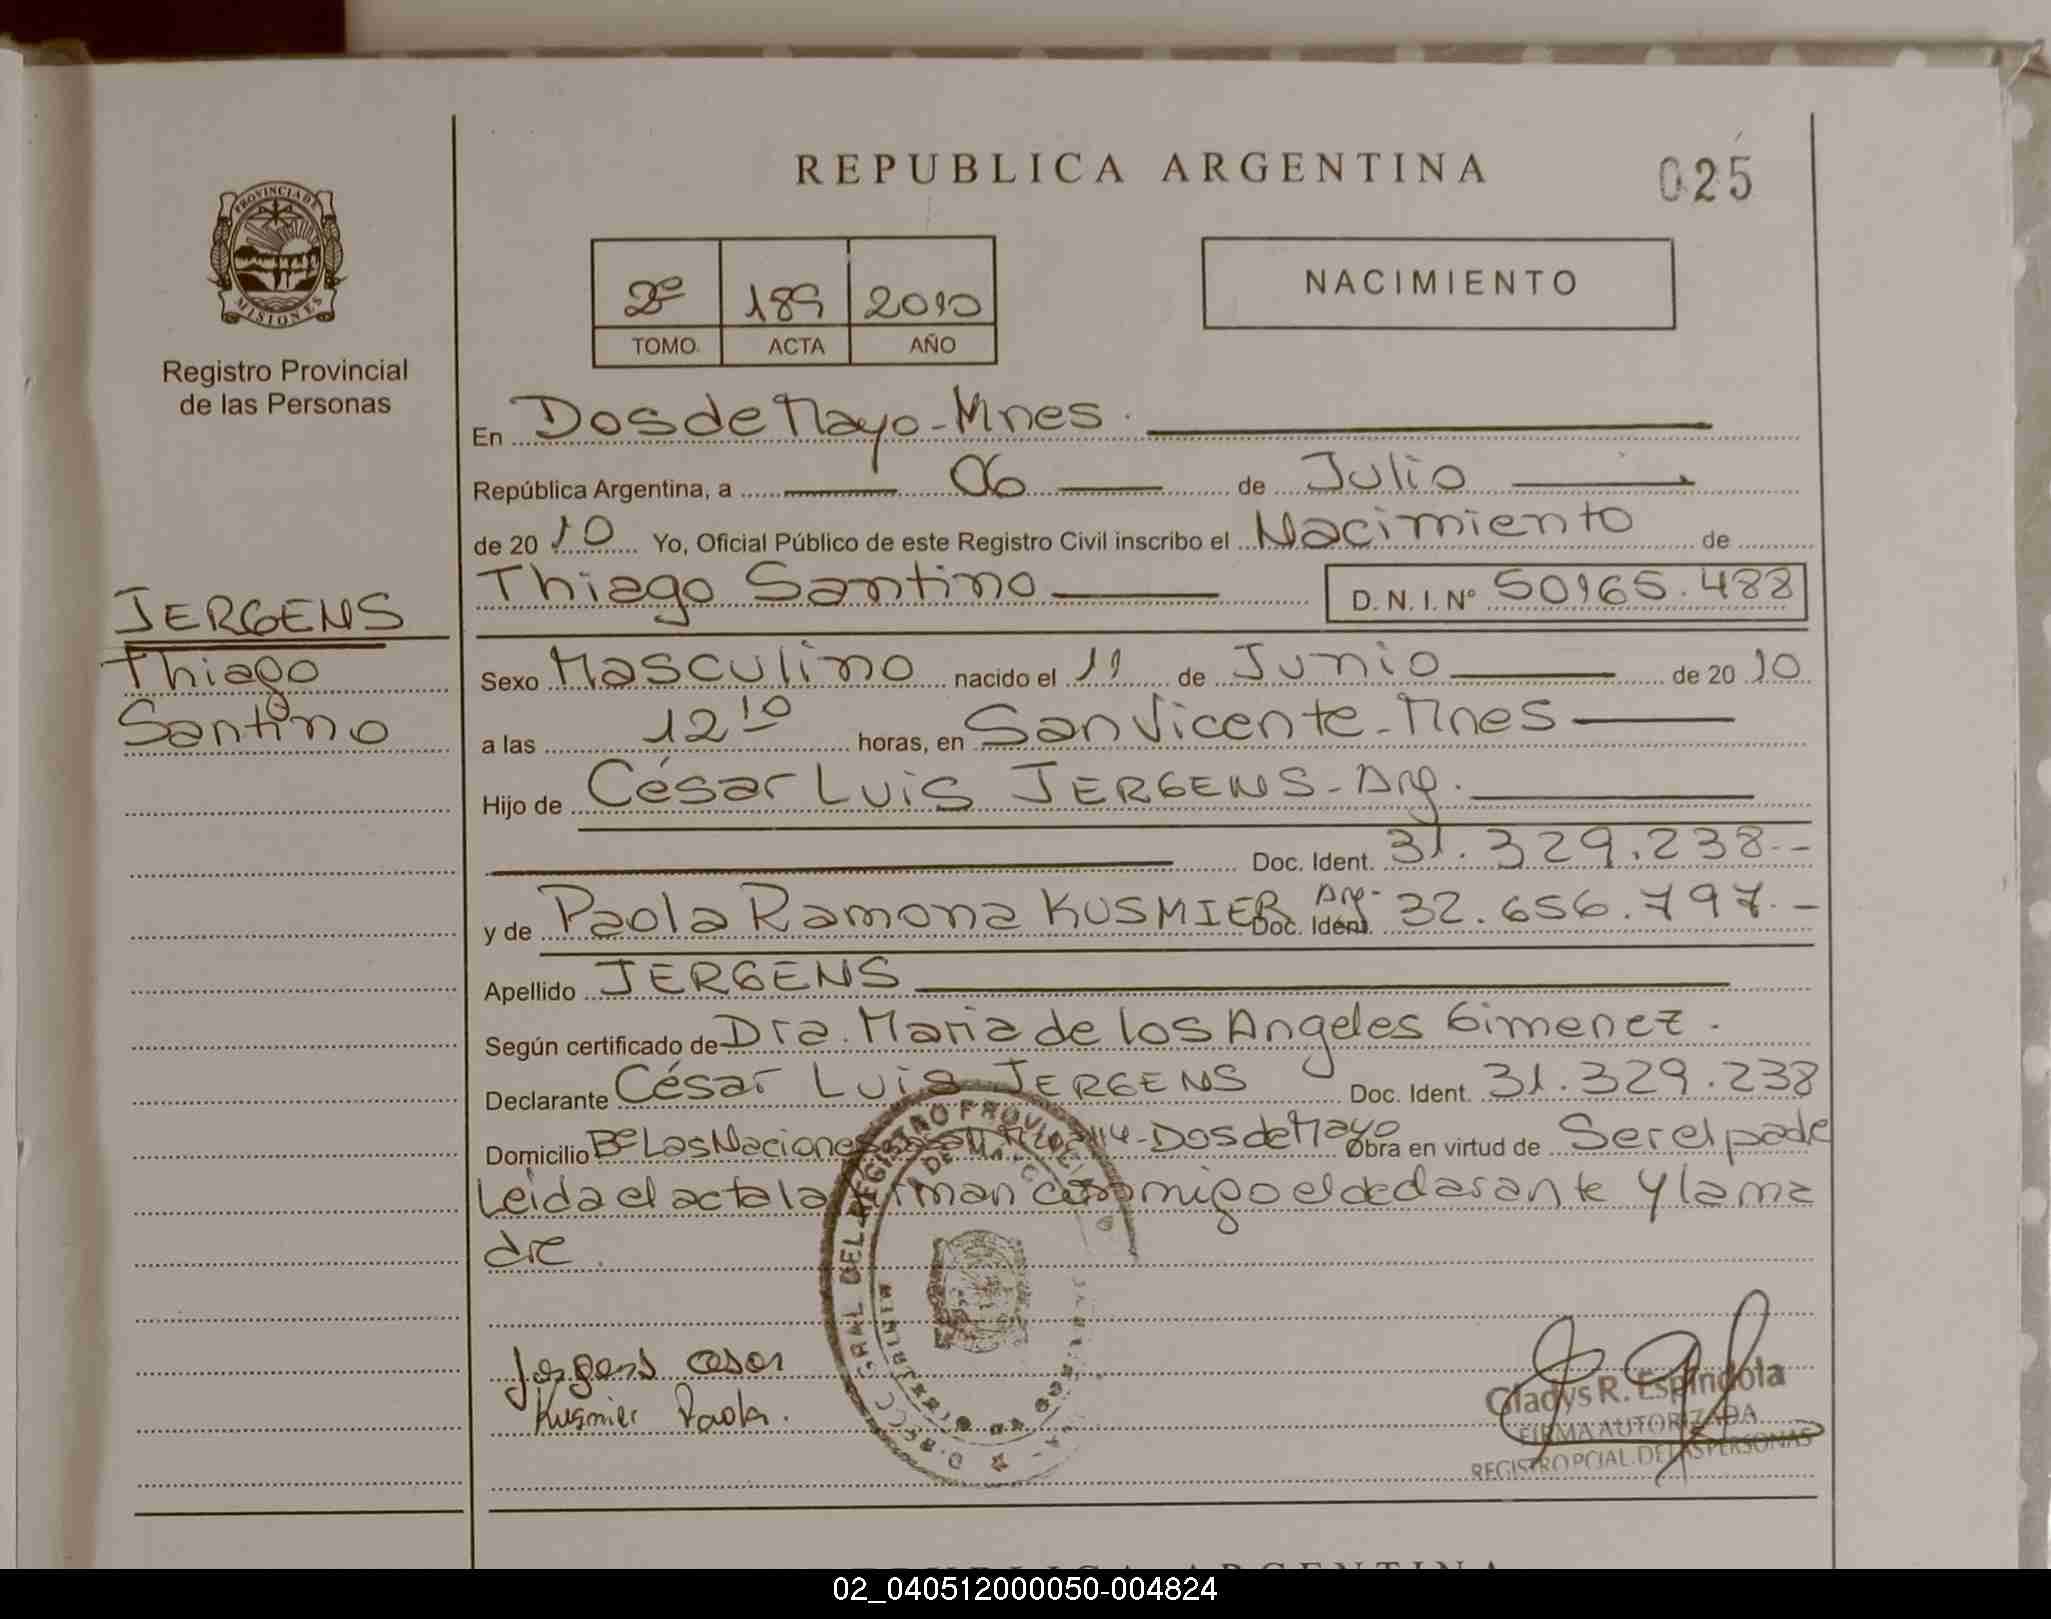 REPUBLICA ARGENTINA
025
PROVINCIA DE
MISIONES
Registro Provincial
de las Personas
2º 189 2010
TOMO. ACTA AÑO
NACIMIENTO
En Dos de Mayo - Mnes.
República Argentina, a 06 de Julio
de 20 10 Yo, Oficial Público de este Registro Civil inscribo el Nacimiento de
Thiago Santino D. N. I. Nº 50165.488
JERGENS
Thiago
Santino
Sexo Masculino nacido el 11 de Junio de 20 10
a las 12 10 horas, en San Vicente - Mnes
Hijo de César Luis JERGENS - Arg.
Doc. Ident. 31.329.238.-
y de Paola Ramona KUSMIER Arg- Doc. Ident. 32.656.797.-
Apellido JERGENS
Según certificado de Dra. Maria de los Angeles Gimenez.
Declarante César Luis JERGENS Doc. Ident. 31.329.238
Domicilio Bº Las Naciones - Dos de Mayo Obra en virtud de Ser el padre
Leida el acta la firman conmigo el declarante y la ma
dre.
Jergens Cesar
Kusmier Paola.
GRAL DEL REGISTRO PROVINCIAL
Gladys R. Espindola
FIRMA AUTORIZADA
REGISTRO PCIAL. DE LAS PERSONAS
REPUBLICA ARGENTINA
02_040512000050-004824